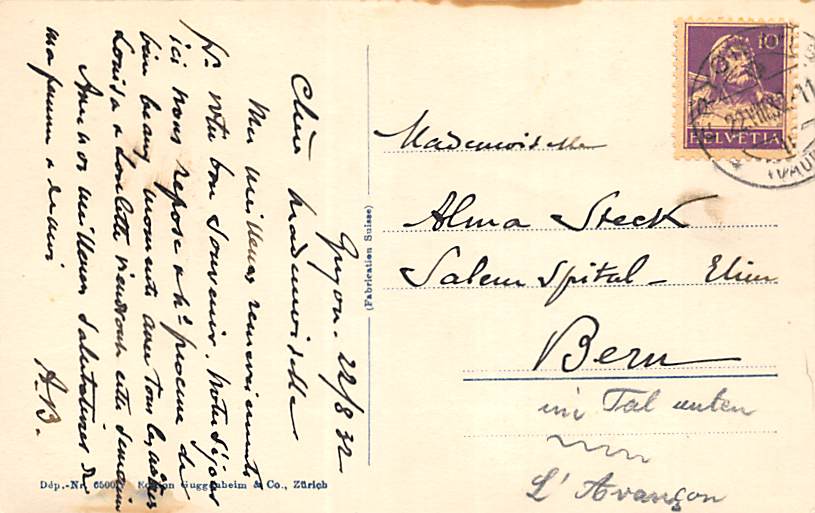 Gryon. 22/8 32
Chère Mademoiselle
Mes meilleurs remerciements
pr. votre bon souvenir. Notre séjour
ici nous repose et ns. procure de
bien beaux moments avec tous
Louisa et Loulette viendront cette semaine
Avec nos meilleures salutations de
ma femme et de moi
A. B.
Mademoiselle
Alma Steck
Salem Spital - Elim
Bern
im Tal unten
L'Avançon
10
HELVETIA
22.VIII.32-11
(VAUD
(Fabrication Suisse)
Dép.-Nr. 6500 Edition Guggenheim & Co., Zürich